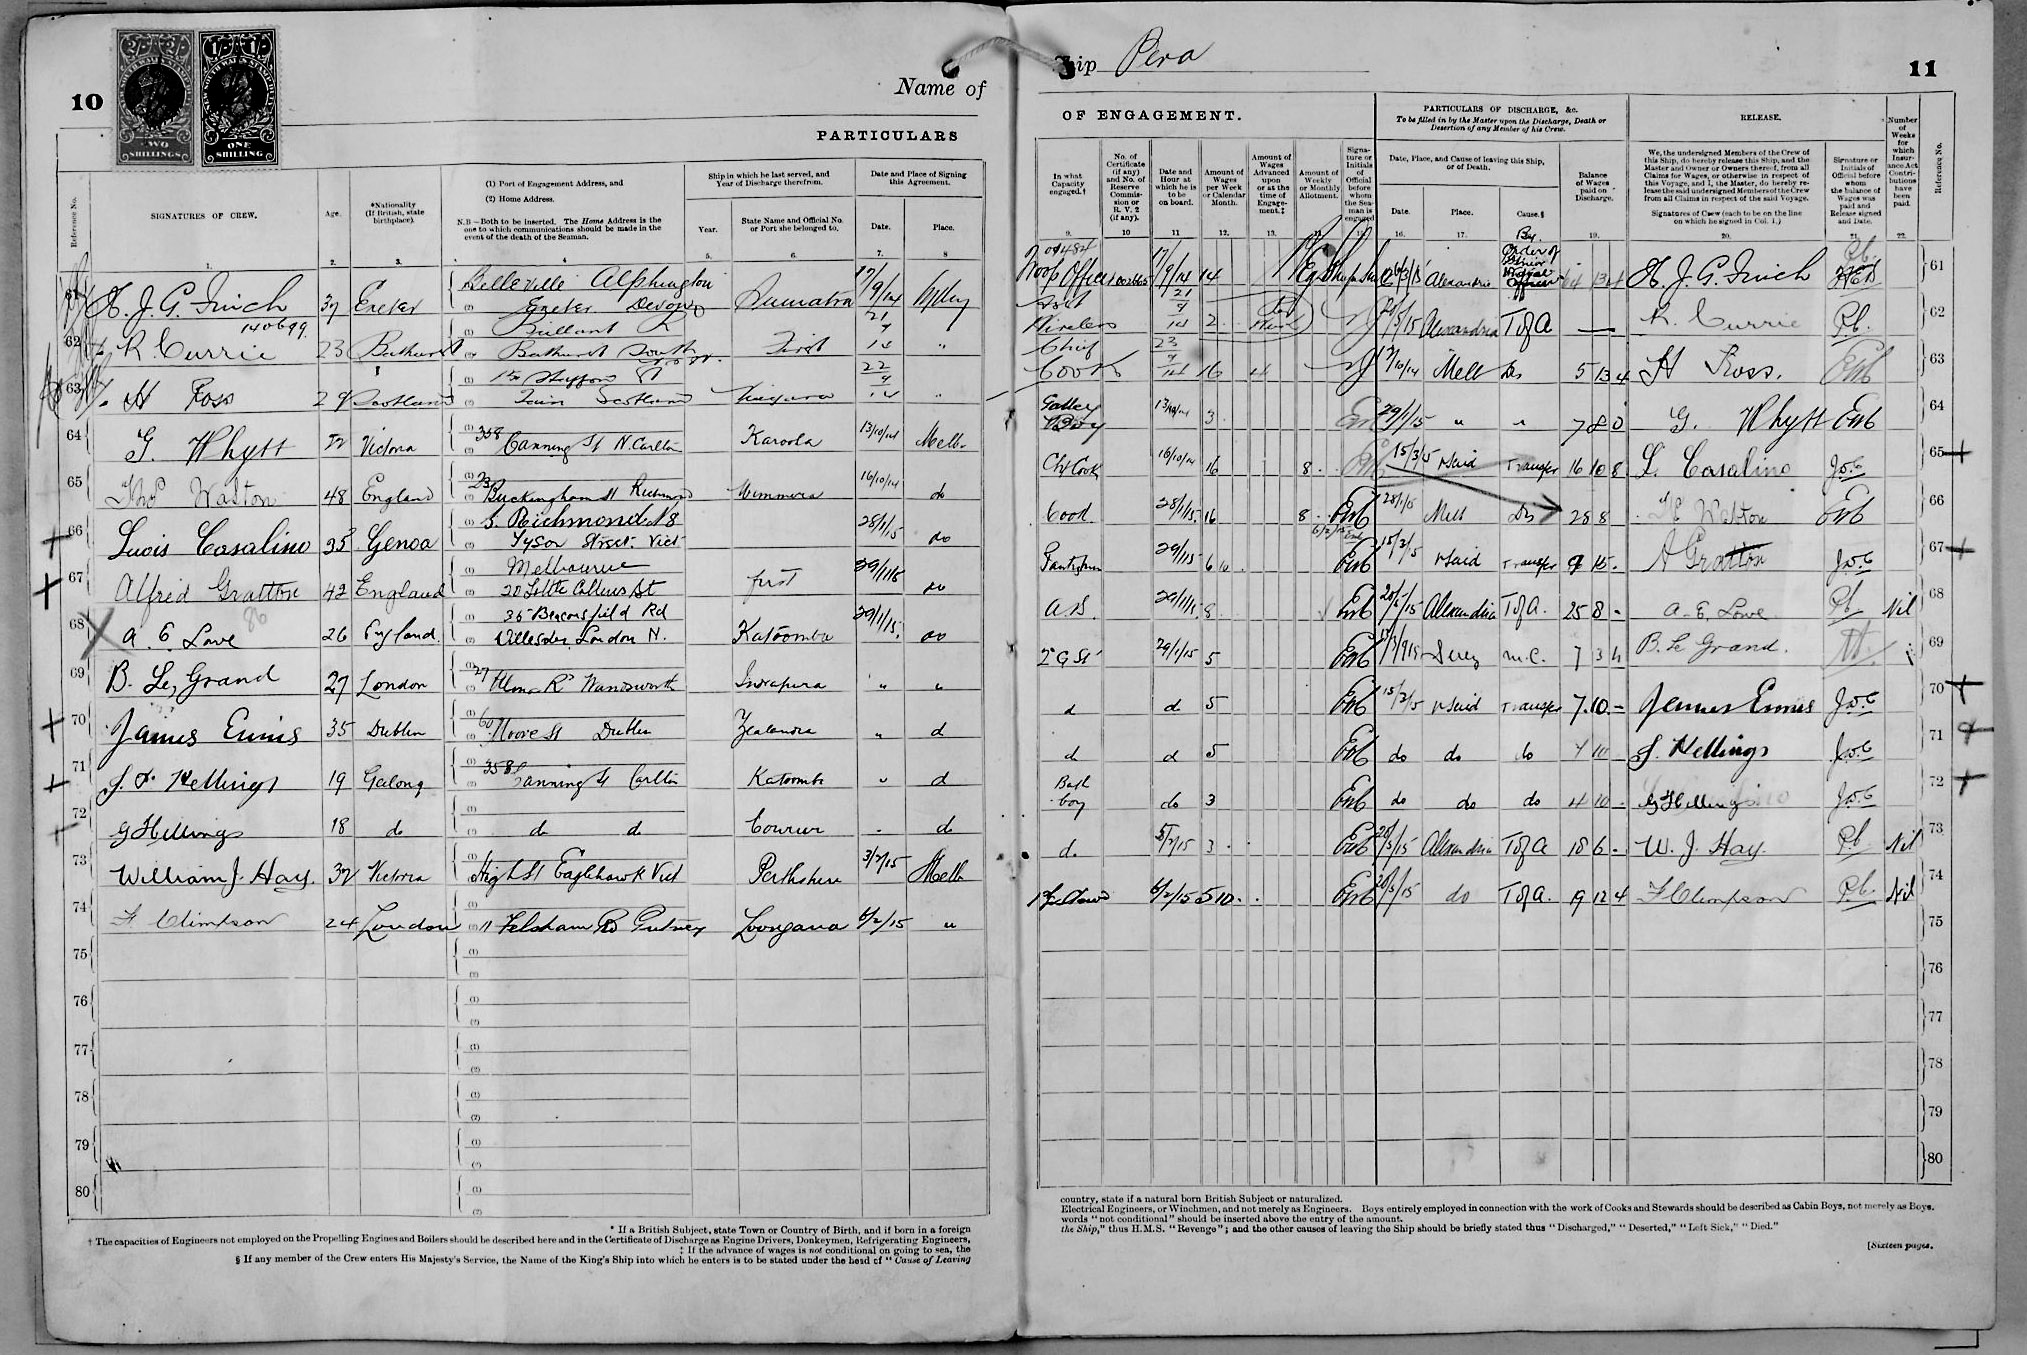 10
TWO SHILLINGS
ONE SHILLING
Name of
PARTICULARS
Reference No.
SIGNATURES OF CREW.
Age.
*Nationality (If British, state birthplace).
(1) Port of Engagement Address, and
(2) Home Address.
N.B—Both to be inserted. The Home Address is the one to which communications should be made in the event of the death of the Seaman.
Ship in which he last served, and Year of Discharge therefrom.
Year.
State Name and Official No. or Port she belonged to.
Date and Place of Signing this Agreement.
Date.
Place.
1. 2. 3. 4. 5. 6. 7. 8
61 A. J. G. Finch 37 Exeter Belleville Alphington Exeter Devon Sumatra 17/9/14 Sydney
140699
62 R. Currie 23 Bathurst Brilliant St Bathurst South First 21/9/14 "
63 H Ross 29 Scotland Tain Scotland Niagara 22/9/14 "
64 G. Whytt Victoria 358 Canning St N. Carlton Karoola 13/10/14 Melb
65 Thos Walton 48 England 23 Buckingham St Richmond Wimmera 16/10/14 do
66 Luois Casalino 35 Genoa S. Richmond N8 Tyson Street. Vict 28/1/15 do
67 Alfred Gratton 42 England Melbourne 20 Little Collins St first 29/1/15 do
68 A. E. Lowe 26 England. 35 Beaconsfield Rd Willesden London N. Katoomba 29/1/15. do
69 B. Le Grand 27 London 27 Alma Rd Wandsworth Indrapura " "
70 James Ennis 35 Dublin 60 Moore St Dublin Zealandia " d
71 19 Geelong 358 Canning St Carlton Katoomba " d
72 G Hellings 18 do do do Courier - do
73 William J. Hay. 32 Victoria High St Eaglehawk Vict Perthshire 3/2/15 Melb
74 F Climpson 24 London 11 Felsham Rd Putney Loongana 6/2/15 "
75
76
77
78
79
80
* If a British Subject, state Town or Country of Birth, and if born in a foreign
† The capacities of Engineers not employed on the Propelling Engines and Boilers should be described here and in the Certificate of Discharge as Engine Drivers, Donkeymen, Refrigerating Engineers,
‡ If the advance of wages is not conditional on going to sea, the
§ If any member of the Crew enters His Majesty's Service, the Name of the King's Ship into which he enters is to be stated under the head of "Cause of Leaving
Ship Pera
11
OF ENGAGEMENT.
PARTICULARS OF DISCHARGE, &c.
To be filled in by the Master upon the Discharge, Death or Desertion of any Member of his Crew.
RELEASE.
In what Capacity engaged.†
No. of Certificate (if any) and No. of Reserve Commission or R. V. 2 (if any).
Date and Hour at which he is to be on board.
Amount of Wages per Week or Calendar Month.
Amount of Wages Advanced upon or at the time of Engagement.‡
Amount of Weekly or Monthly Allotment.
Signature or Initials of Official before whom the Seaman is engaged
Date, Place, and Cause of leaving this Ship, or of Death.
Date.
Place.
Cause.§
Balance of Wages paid on Discharge.
We, the undersigned Members of the Crew of this Ship, do hereby release this Ship, and the Master and Owner or Owners thereof, from all Claims for Wages, or otherwise in respect of this Voyage, and I, the Master, do hereby release the said undersigned Members of the Crew from all Claims in respect of the said Voyage.
Signatures of Crew (each to be on the line on which he signed in Col. 1.)
Signature or Initials of Official before whom the balance of Wages was paid and Release signed and Date.
Number of Weeks for which Insurance Act Contributions have been paid.
Reference No.
9. 10 11 12. 13. 16. 17. 19. 20. 21. 22.
17/9/14 14 Alexandria By Order of Senior Officer A. J. G. Finch 61
Asst Wireless 21/9/14 2 20/5/15 Alexandria T of A — R. Currie P.b. 62
Chief Cook 23/9/14 16 4 17/10/14 Melb Dis 5 13 4 H Ross. 63
Galley Boy 13/10/14 3 29/1/15 " " 7 8 0 G. Whytt 64
Ch Cook 16/10/14 16 8 15/3/5 P Said Transfer 16 10 8 L. Casalino 65
Cook 28/1/15. 16 8 28/1/15 Melb Dis 28 8 T Walton 66
Pantryman 29/1/15 6 10 15/3/5 P Said Transfer 9 15 - A Gratton 67
A.B. 29/1/15 8 20/5/15 Alexandria T of A. 25 8 - A. E. Lowe P.b Nil 68
29/1/15 5 Suez m.c. 7 3 4 B. Le Grand. 69
d d 5 P Said Transfer 7. 10. - James Ennis 70
d d 5 do do do 4 10 J. Hellings 71
Bath boy do 3 do do do 4 10 - G Hellings 72
d. 5/2/15 3 20/5/15 Alexandria T of A 18 6 - W. J. Hay. P.b. Nil 73
6/2/15 5 10 20/5/15 do T of A. 19 12 4 F Climpson P.b. Nil 74
75
76
77
78
79
80
country, state if a natural born British Subject or naturalized.
Electrical Engineers, or Winchmen, and not merely as Engineers. Boys entirely employed in connection with the work of Cooks and Stewards should be described as Cabin Boys, not merely as Boys.
words "not conditional" should be inserted above the entry of the amount.
the Ship," thus H.M.S. "Revenge"; and the other causes of leaving the Ship should be briefly stated thus "Discharged," "Deserted," "Left Sick," "Died."
[Sixteen pages.